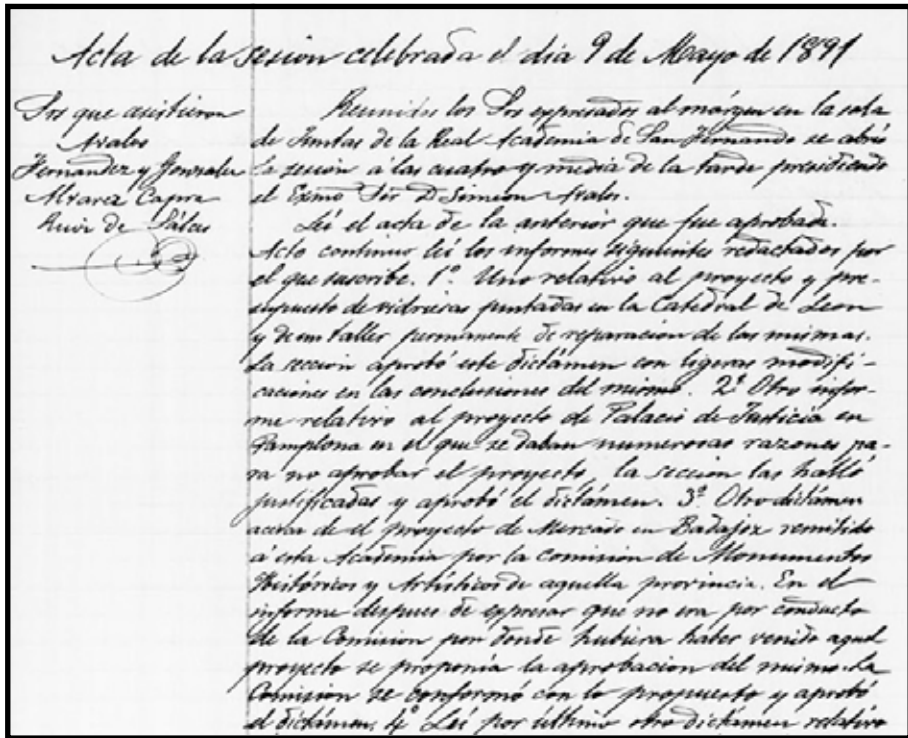 Acta de la sesion celebrada el dia 9 de Mayo de 1891
Srs que asistieron
Avalos
Fernandez y Gonzalez
Alvarez Capra
Ruiz de Salces
Reunidos los Srs expresados al márgen en la sala
de Juntas de la Real Academia de San Fernando se abrió
la sesion á las cuatro y media de la tarde presidiendo
el Exmo Sôr D. Simeon Avalos.
Leí el acta de la anterior que fue aprobada.
Acto continuo leí los informes siguientes redactados por
el que suscribe. 1º. Uno relativo al proyecto y pre-
supuesto de vidrieras pintadas en la Catedral de Leon
y de un taller permanente de reparacion de las mismas.
La seccion aprobó este dictámen con ligeras modifi-
caciones en las conclusiones del mismo. 2º Otro infor-
me relativo al proyecto de Palacio de Justicia en
Pamplona en el que se daban numerosas razones pa-
ra no aprobar el proyecto, la seccion las halló
justificadas y aprobó el dictámen. 3º Otro dictámen
acerca de el proyecto de Mercado en Badajoz remitido
á esta Academia por la comision de Monumentos
Históricos y Artísticos de aquella provincia. En el
informe despues de expresar que no era por conducto
de la Comision por donde hubiera haber venido aquel
proyecto se proponia la aprobacion del mismo. La
Comision se conformó con lo propuesto y aprobó
el dictámen. 4º Leí por último otro dictámen relativo